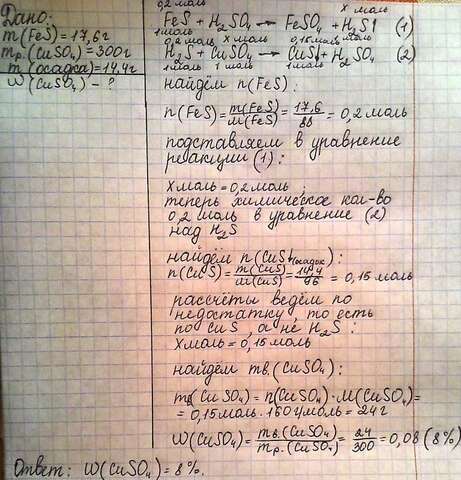 Дано:
m(FeS)=17,6г
mр.(CuSO₄)=300г
m(осадка)=14,4г
W(CuSO₄) - ?
0,2 моль x моль
FeS + H₂SO₄ → FeSO₄ + H₂S↑ (1)
1моль 1моль
0,2 моль x моль 0,15моль
H₂S + CuSO₄ → CuS↓ + H₂SO₄ (2)
1моль 1 моль 1моль
найдём n(FeS):
n(FeS) = m(FeS)/M(FeS) = 17,6/88 = 0,2 моль
подставляем в уравнение
реакции (1):
xмоль = 0,2 моль
теперь химическое кол-во
0,2 моль в уравнение (2)
над H₂S
найдём n(CuS↓(осадок):
n(CuS) = m(CuS)/M(CuS) = 14,4/96 = 0,15 моль
рассчёты ведём по
недостатку, то есть
по CuS, а не H₂S:
xмоль = 0,15 моль
найдём mв.(CuSO₄):
m(CuSO₄) = n(CuSO₄)·M(CuSO₄)=
= 0,15моль · 160г/моль = 24г
W(CuSO₄) = mв.(CuSO₄)/mр.(CuSO₄) = 24/300 = 0,08 (8%)
Ответ: W(CuSO₄) = 8%.